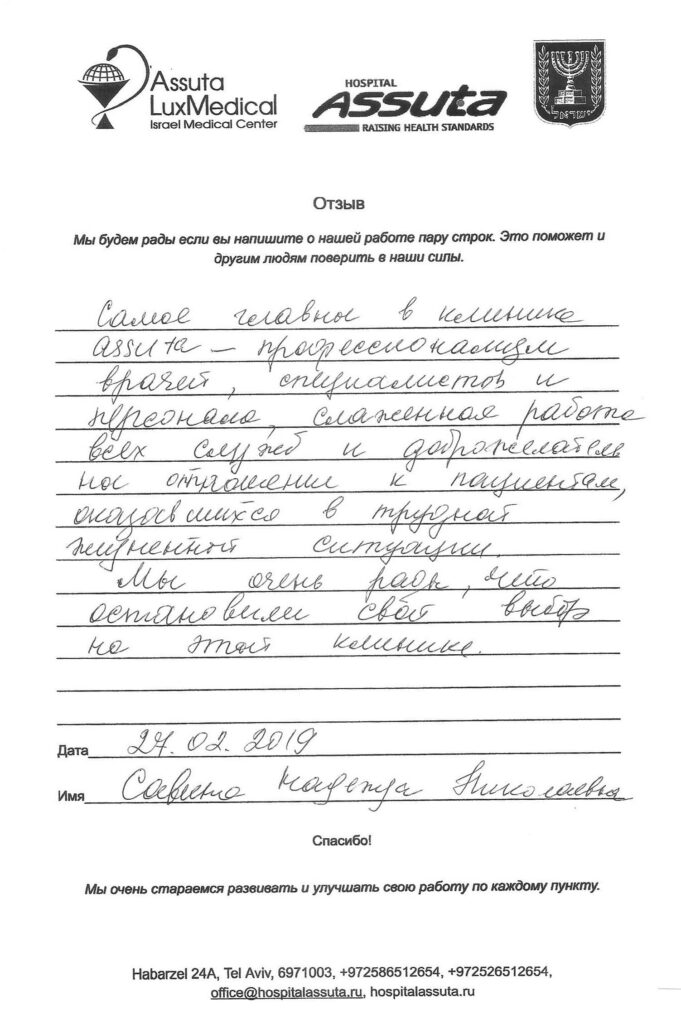 Assuta
LuxMedical
Israel Medical Center
HOSPITAL
Assuta
RAISING HEALTH STANDARDS
ישראל
Отзыв
Мы будем рады если вы напишите о нашей работе пару строк. Это поможет и
другим людям поверить в наши силы.
Самое главное в клинике
assuta – профессионализм
врачей, специалистов и
персонала, слаженная работа
всех служб и доброжелатель
ное отношение к пациентам,
оказавшихся в трудной
жизненной ситуации.
Мы очень рады, что
остановили свой выбор
на этой клинике.
Дата 27.02.2019
Имя Савина Надежда Николаевна
Спасибо!
Мы очень стараемся развивать и улучшать свою работу по каждому пункту.
Habarzel 24A, Tel Aviv, 6971003, +972586512654, +972526512654,
office@hospitalassuta.ru, hospitalassuta.ru